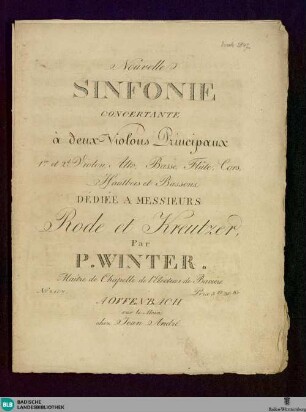 Nouvelle
SINFONIE
CONCERTANTE
à deux Violons Principaux
1er et 2d Violon, Alto, Basse, Flûte, Cors,
Hautbois et Bassons
DEDIÉE A MESSIEURS
Rode et Kreutzer,
Par
P. WINTER.
Maitre de Chapelle de l'Electeur de Baviere
Prix
A OFFENBACH
sur le Mein,
chez Jean André
BLB
BADISCHE
LANDESBIBLIOTHEK
Baden-Württemberg